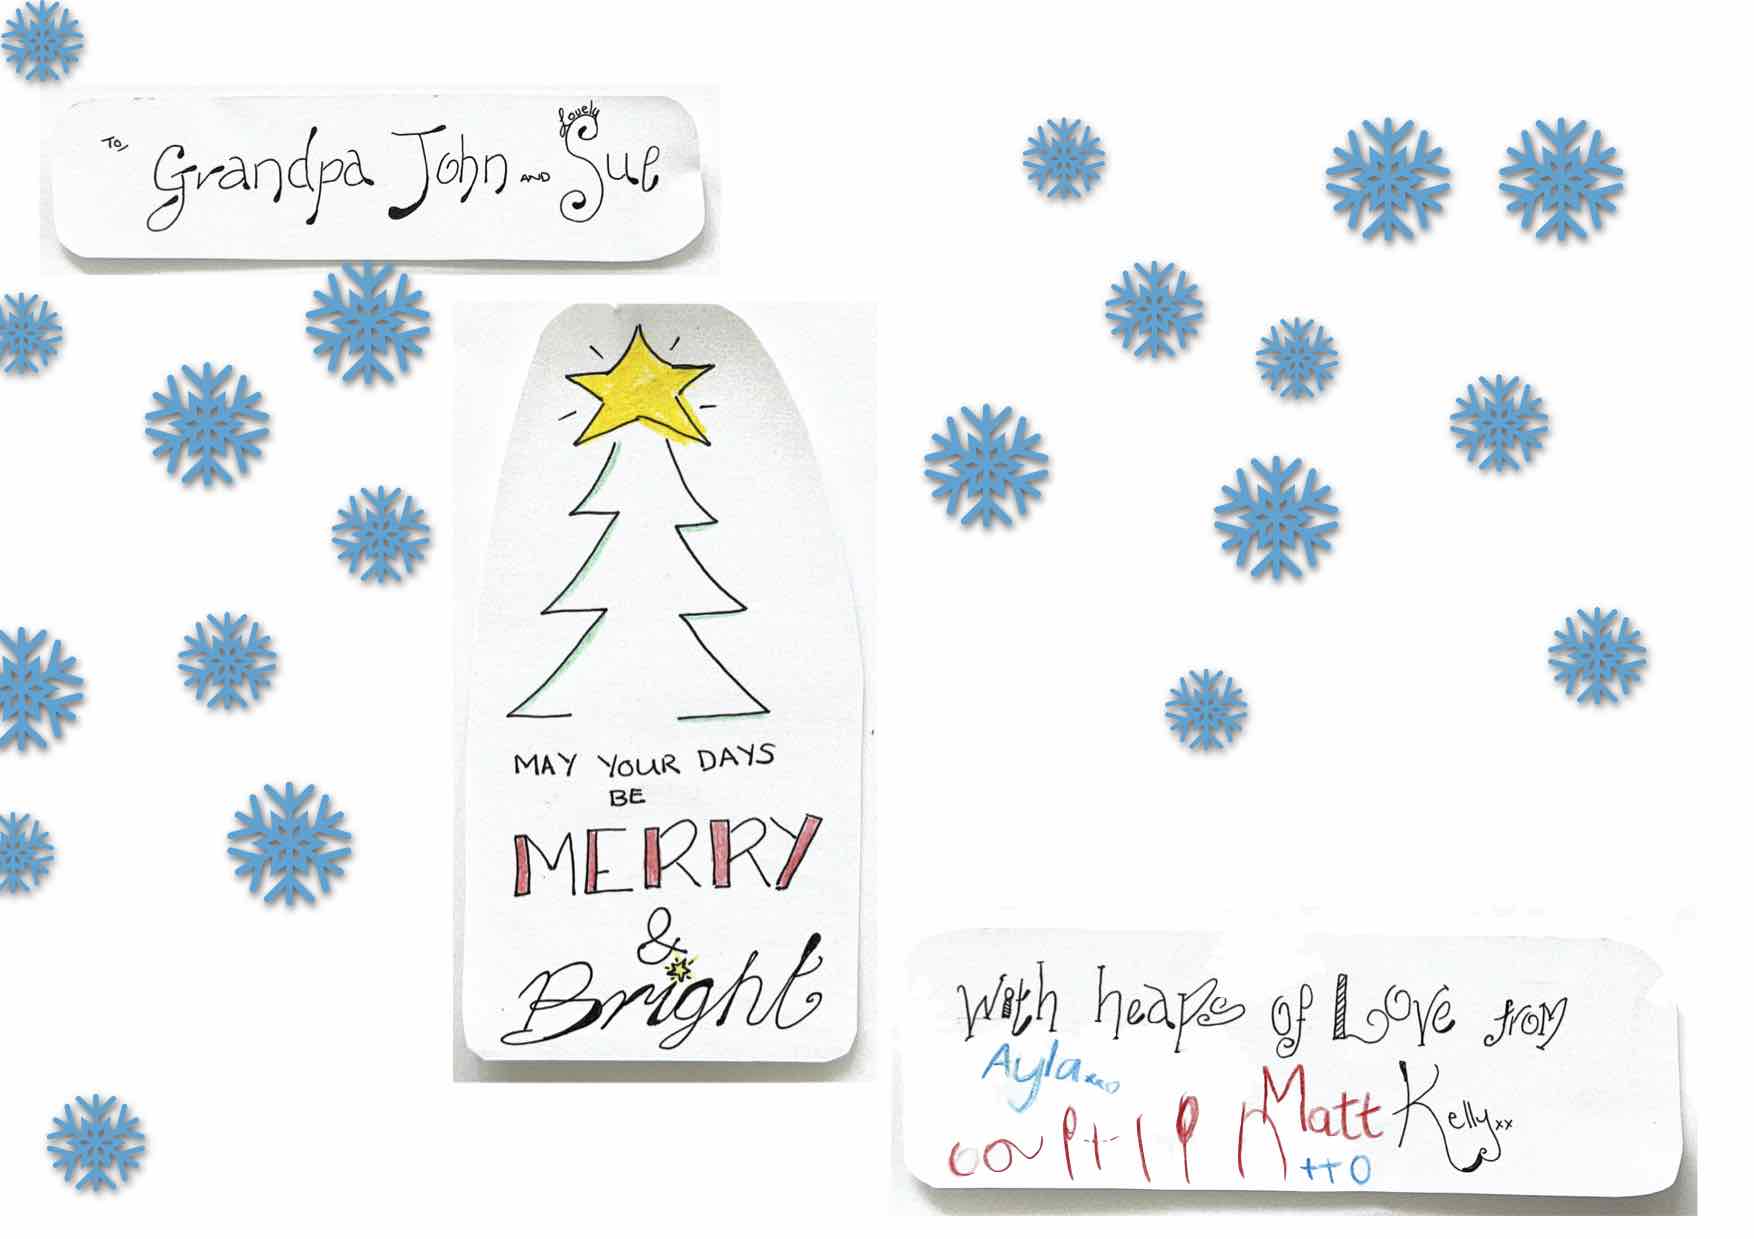 To,
Grandpa John AND lovely Sue
MAY YOUR DAYS
BE
MERRY
&
Bright
With heaps of Love from
Ayla xxo
Matt Kelly xx